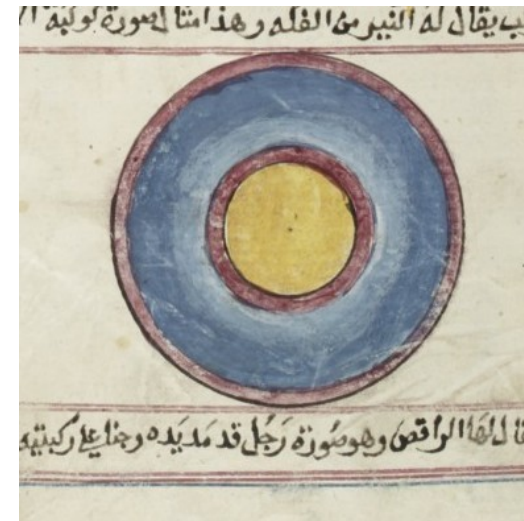 يقال له النير من الفكه وهذا مثال صورة لوليه
ل لها الراقص وهو صورة رجل قد مد يده وجثا علي ركبتيه